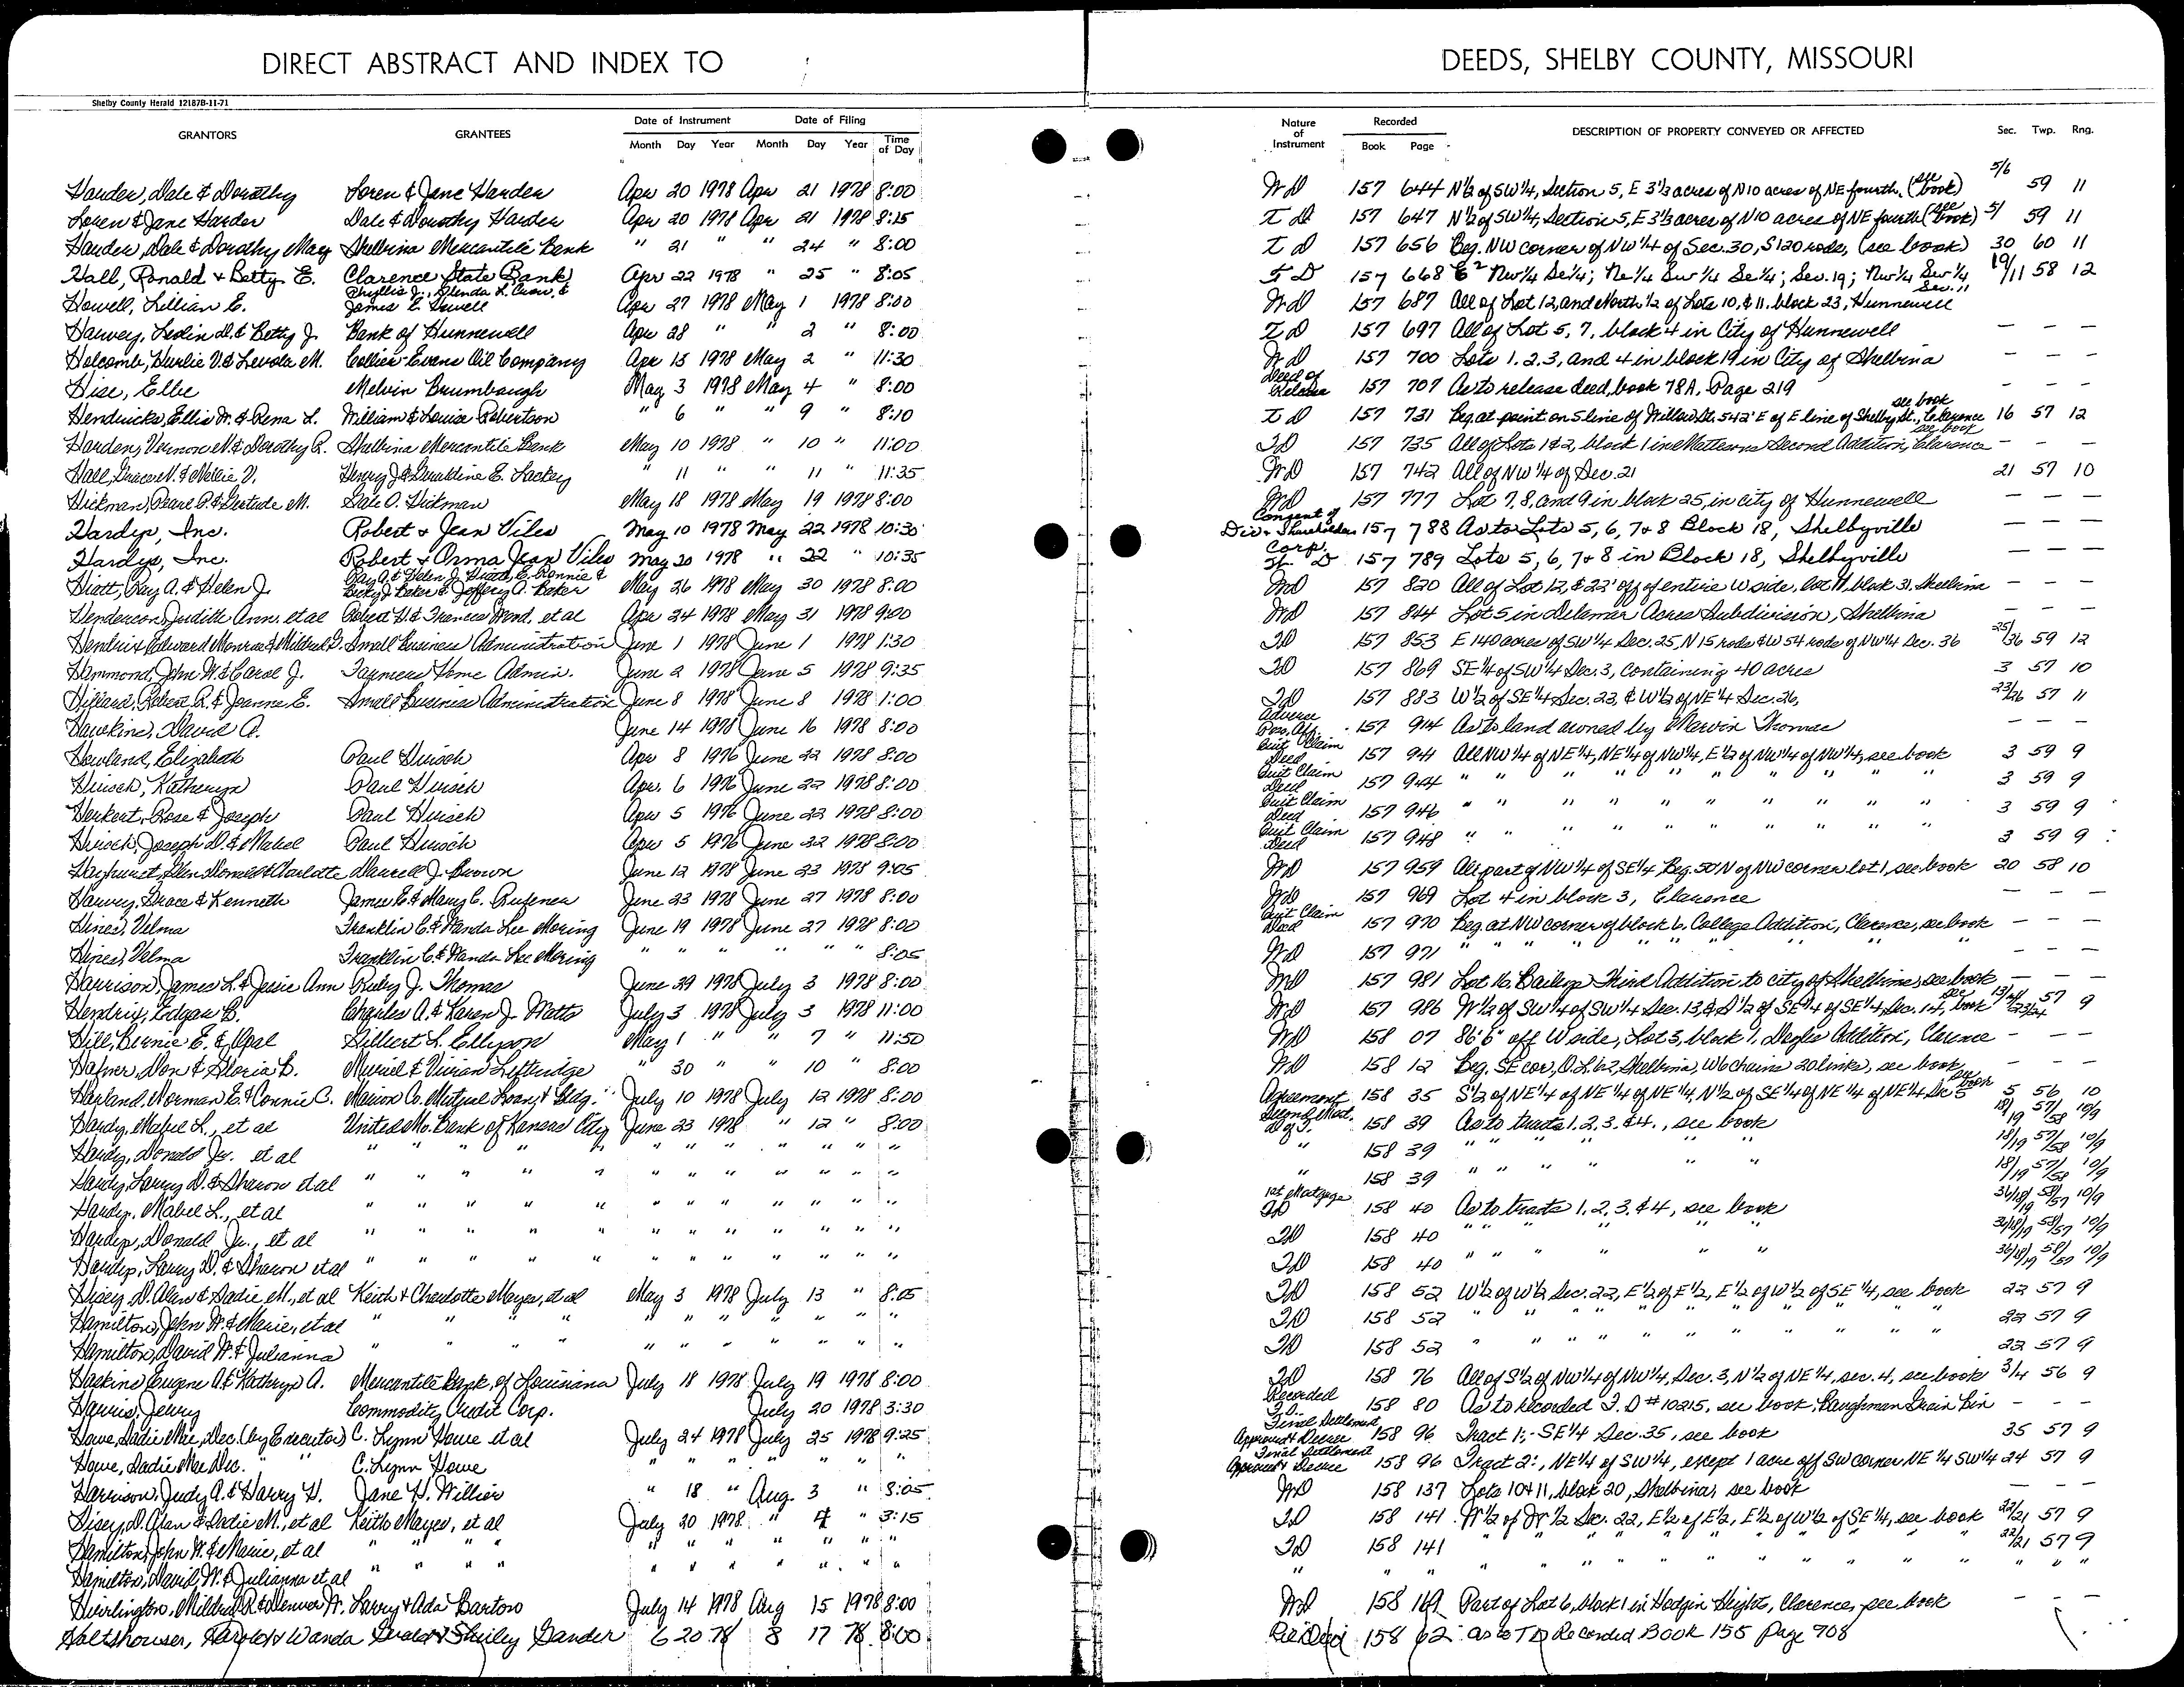 DIRECT ABSTRACT AND INDEX TO DEEDS, SHELBY COUNTY, MISSOURI
Shelby County Herald 12187B-11-71
GRANTORS GRANTEES Date of Instrument Month Day Year Date of Filing Month Day Year Time of Day Nature of Instrument Recorded Book Page DESCRIPTION OF PROPERTY CONVEYED OR AFFECTED Sec. Twp. Rng.
Harder, Dale & Dorothy Loren & Jane Harder Apr 20 1978 Apr 21 1978 8:00 WD 157 644 N½ of SW¼, Section 5, E 3⅓ acres of N10 acres of NE fourth. (see book) 5/6 59 11
Loren & Jane Harder Dale & Dorothy Harder Apr 20 1978 Apr 21 1978 8:15 TD 157 647 N½ of SW¼, Section 5, E 3⅓ acres of N10 acres of NE fourth (see book) 5/ 59 11
Harder, Dale & Dorothy May Shelbina Mercantile Bank " 21 " " 24 " 8:00 TD 157 656 Beg. NW corner of NW¼ of Sec. 30, S120 rods, (see book) 30 60 11
Hall, Ronald + Betty E. Clarence State Bank Apr 22 1978 " 25 " 8:05 TD 157 668 E² Nw¼ Se¼; Ne¼ Sw¼ Se¼; Sec. 19; Nw¼ Sw¼ Sec. 11 19/11 58 12
Howell, Lillian E. Phyllis J., Glenda L. Crow, & James E. Howell Apr 27 1978 May 1 1978 8:00 WD 157 687 All of Lot 12, and North ½ of Lots 10, & 11, block 23, Hunnewell
Harvey, Leslin D. & Betty J. Bank of Hunnewell Apr 28 " " 2 " 8:00 TD 157 697 All of Lot 5, 7, block 4 in City of Hunnewell — — —
Holcomb, Hurlie V. & Levola M. Collier-Evans Oil Company Apr 15 1978 May 2 " 11:30 WD 157 700 Lots 1, 2, 3, and 4 in block 19 in City of Shelbina — — —
Hise, Elbe Melvin Brumbaugh May 3 1978 May 4 " 8:00 Deed of Release 157 707 As to release deed, book 78A, Page 219 — — —
Hendricks, Ellis W. & Rena L. William & Louise Robertson " 6 " " 9 " 8:10 TD 157 731 Beg. at point on S line of Willow St. 542' E of E line of Shelby St., Clarence see book 16 57 12
Harden, Vernon N. & Dorothy R. Shelbina Mercantile Bank May 10 1978 " 10 " 11:00 TD 157 735 All of Lots 1 & 2, block 1 in Mattesons Second Addition, Clarence see book — — —
Hall, N. & Nellie V. Henry J. & Geraldine E. Lackey " 11 " " 11 " 11:35 WD 157 742 All of NW¼ of Sec. 21 21 57 10
Hickman, Pearl P. & Gertrude M. Dale O. Hickman May 18 1978 May 19 1978 8:00 WD 157 777 Lot 7, 8, and 9 in block 25, in city of Hunnewell — — —
Hardys, Inc. Robert + Jean Viles May 10 1978 May 22 1978 10:30 Consent of Dir + Shareholders 157 788 As to Lots 5, 6, 7 + 8 Block 18, Shelbyville — — —
Hardys, Inc. Robert + Orma Jean Viles May 20 1978 " 22 " 10:35 Corp. D 157 789 Lots 5, 6, 7 + 8 in Block 18, Shelbyville — — —
Hiatt, Ray A. & Helen J. Ray A. & Helen J. Hiatt, E. Ronnie & Becky J. Baker & Jeffery A. Baker May 26 1978 May 30 1978 8:00 WD 157 820 All of Lot 12, & 22' off of entire W side, Lot 11, block 31, Shelbina — — —
Henderson, Judith Ann, et al Robert H. & Frances Wood, et al Apr 24 1978 May 31 1978 9:00 WD 157 844 Lot 5 in Delamar Acres Subdivision, Shelbina — — —
Hendrix, Edward Monroe & Mildred D. Small Business Administration June 1 1978 June 1 1978 1:30 TD 157 853 E 140 acres of SW¼ Sec. 25, N 15 rods & W 54 rods of NW¼ Sec. 36 25/36 59 12
Hammond, John W. & Carol J. Farmers Home Admin. June 2 1978 June 5 1978 9:35 TD 157 869 SE¼ of SW¼ Sec. 3, containing 40 acres 3 57 10
Hillard, Robert R. & Joanne E. Small Business Administration June 8 1978 June 8 1978 1:00 TD 157 883 W½ of SE¼ Sec. 23, & W½ of NE¼ Sec. 26, 23/26 57 11
Hawkins, David A. June 14 1978 June 16 1978 8:00 Adverse Poss. Aff. 157 914 As to land owned by Marvin Thomas — — —
Howland, Elizabeth Paul Hirsch Apr 8 1976 June 22 1978 8:00 Quit Claim Deed 157 941 All NW¼ of NE¼, NE¼ of NW¼, E½ of NW¼ of NW¼, see book 3 59 9
Hirsch, Kathryn Paul Hirsch Apr. 6 1976 June 22 1978 8:00 Quit Claim Deed 157 944 " " " " " " " " 3 59 9
Herkert, Rose & Joseph Paul Hirsch Apr 5 1976 June 22 1978 8:00 Quit Claim Deed 157 946 " " " " " " " " 3 59 9
Hirsch, Joseph D. & Mabel Paul Hirsch Apr 5 1976 June 22 1978 8:00 Quit Claim Deed 157 948 " " " " " " " " 3 59 9
Hayhurst, Glen Dorrell & Charlotte Darrell J. Brown June 12 1978 June 23 1978 9:05 WD 157 959 All part of NW¼ of SE¼, Beg. 50' N of NW corner lot 1, see book 20 58 10
Harvey, Grace & Kenneth James E. & Mary C. Rufener June 23 1978 June 27 1978 8:00 WD 157 969 Lot 4 in block 3, Clarence — — —
Hines, Velma Franklin C. & Wanda Lee Moring June 19 1978 June 27 1978 8:00 Quit Claim Deed 157 970 Beg. at NW corner of block 6, College Addition, Clarence, see book — — —
Hines, Velma Franklin C. & Wanda Lee Moring " " " " " " 8:05 WD 157 971 " " " " " " " — — —
Harrison, James L. & Jessie Ann Ruby J. Thomas June 29 1978 July 3 1978 8:00 WD 157 981 Lot 16, Baileys Third Addition to city of Shelbina, see book — — —
Hendrix, Edgar B. Charles A. & Karen J. Watts July 3 1978 July 3 1978 11:00 WD 157 986 W½ of SW¼ of SW¼ Sec. 13, & S½ of SE¼ of SE¼, Sec. 14, see book 13/14/23/24 57 9
Hill, Bernie E. & Opal Gilbert L. Ellison May 1 " " 7 " 11:50 WD 158 07 86'6" off W side, Lot 3, block 1, Dagles Addition, Clarence — — —
Hafner, Don & Gloria B. Muriel & Vivian Leftridge " 30 " " 10 " 8:00 WD 158 12 Beg. SE cor, O.L. 62, Shelbina, W6 chains 20 links, see book — — —
Harland, Norman E. & Connie C. Marion Co. Mutual Loan, & Bldg. July 10 1978 July 12 1978 8:00 Agreement 158 35 S½ of NE¼ of NE¼ of NE¼, N½ of SE¼ of NE¼ of NE¼ Sec 5 see book 5 56 10
Hardy, Mabel L., et al United Mo. Bank of Kansas City June 23 1978 " 12 " 8:00 Second Mort. D of T. 158 39 As to tracts 1, 2, 3, & 4., see book 18/19 57/58 10/9
Hardy, Donald Jr. et al " " " " " " " " " " " " 158 39 " " " " " " 18/19 57/58 10/9
Hardy, Larry D. & Sharon et al " " " " " " " " " " " " 158 39 " " " " " " 18/19 57/58 10/9
Hardy, Mabel L., et al " " " " " " " " " " " 1st Mortgage TD 158 40 As to tracts 1, 2, 3, & 4, see book 36/18/19 58/57 10/9
Hardy, Donald Jr., et al " " " " " " " " " " " TD 158 40 " " " " " " 36/18/19 58/57 10/9
Hardy, Larry D. & Sharon et al " " " " " " " " " " " TD 158 40 " " " " " 36/18/19 58/57 10/9
Hisey, D. Alan & Sadie M., et al Keith + Charlotte Mayes, et al May 3 1978 July 13 " 8:05 TD 158 52 W½ of W½ Sec. 22, E½ of E½, E½ of W½ of SE¼, see book 22 57 9
Hamilton, John W. & Marie, et al " " " " " " " " " " TD 158 52 " " " " " " " " " 22 57 9
Hamilton, David W. & Julianna " " " " " " " " " " TD 158 52 " " " " " " " " " 22 57 9
Haskins, Eugene A. & Kathryn A. Mercantile Bank, of Louisiana July 18 1978 July 19 1978 8:00 TD 158 76 All of S½ of NW¼ of NW¼, Sec. 3, N½ of NE¼, sec. 4, see book 3/4 56 9
Harris, Jerry Commodity Credit Corp. July 20 1978 3:30 Recorded F.D. 158 80 As to recorded F.D #10215, see book, Baughman Grain Bin - - -
Howe, Sadie Mae, Dec. (by Executor) C. Lynn Howe et al July 24 1978 July 25 1978 9:25 Final Settlement Approval & Decree 158 96 Tract 1:- SE¼ Sec. 35, see book 35 57 9
Howe, Sadie Mae Dec. " " C. Lynn Howe " " " " " " " Final Settlement Approval & Decree 158 96 Tract 2:, NE¼ of SW¼, except 1 acre off SW corner NE¼ SW¼ 24 57 9
Harrison, Judy A. & Harry H. Jane H. Willier " 18 " Aug. 3 " 8:05 WD 158 137 Lots 10 + 11, block 20, Shelbina, see book — — —
Hisey, D. Alan & Sadie M., et al Keith Mayes, et al July 20 1978 " 4 " 3:15 TD 158 141 W½ of W½ Sec. 22, E½ of E½, E½ of W½ of SE¼, see book 22/21 57 9
Hamilton, John W. & Marie, et al " " " " " " " " " " TD 158 141 " " " " " " " " " 22/21 57 9
Hamilton, David W. & Julianna et al " " " " " " " " " " " " " " " " " " " " " " "
Hirrlington, Mildred R. & Denver W. Larry & Ada Barton July 14 1978 Aug 15 1978 8:00 WD 158 169 Part of Lot 6, block 1 in Hodgin Heights, Clarence, see book — — —
Holtshouser, Harold & Wanda Gerald & Shirley Gander 6 20 78 8 17 78 8:00 Rel Deed 158 as to TD Recorded Book 155 page 708